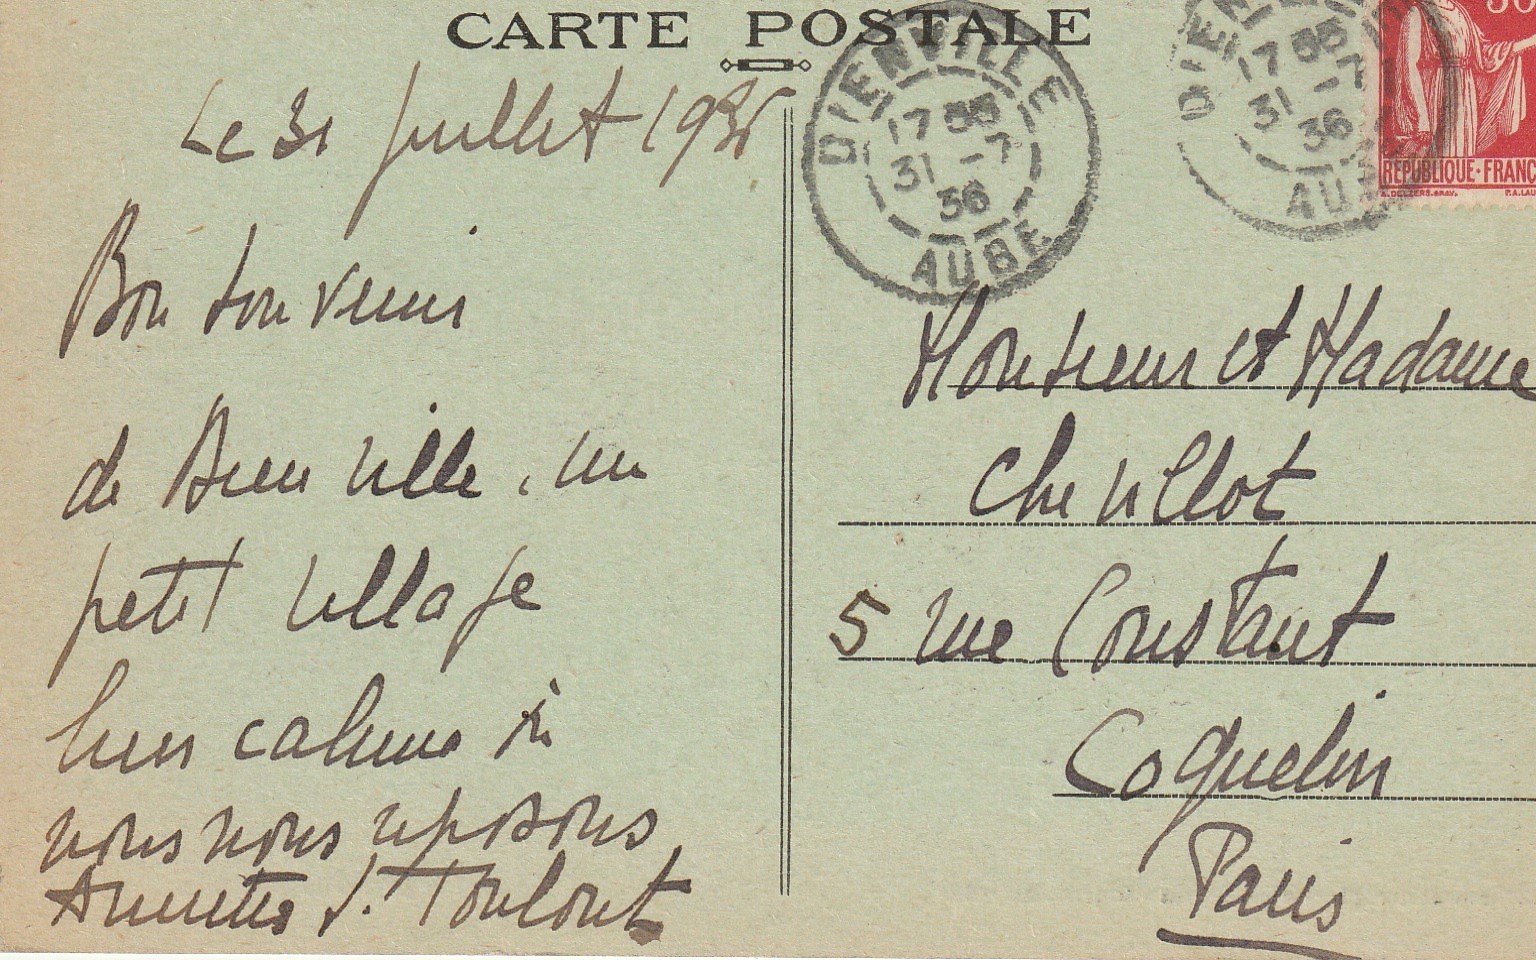 CARTE POSTALE
Le 31 juillet 1936
Bon souvenir
de Dienville, un
petit village
bien calme où
nous nous reposons
Toulout
DIENVILLE
17 55
31 - 7
36
AUBE
DIENVILLE
17 55
31 - 7
36
AUBE
50
RÉPUBLIQUE·FRANC
Monsieur et Madame
Chevillot
5 rue Constant
Coquelin
Paris